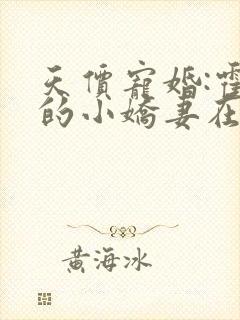 天價寵婚:霍
的小嬌妻在
黃海冰